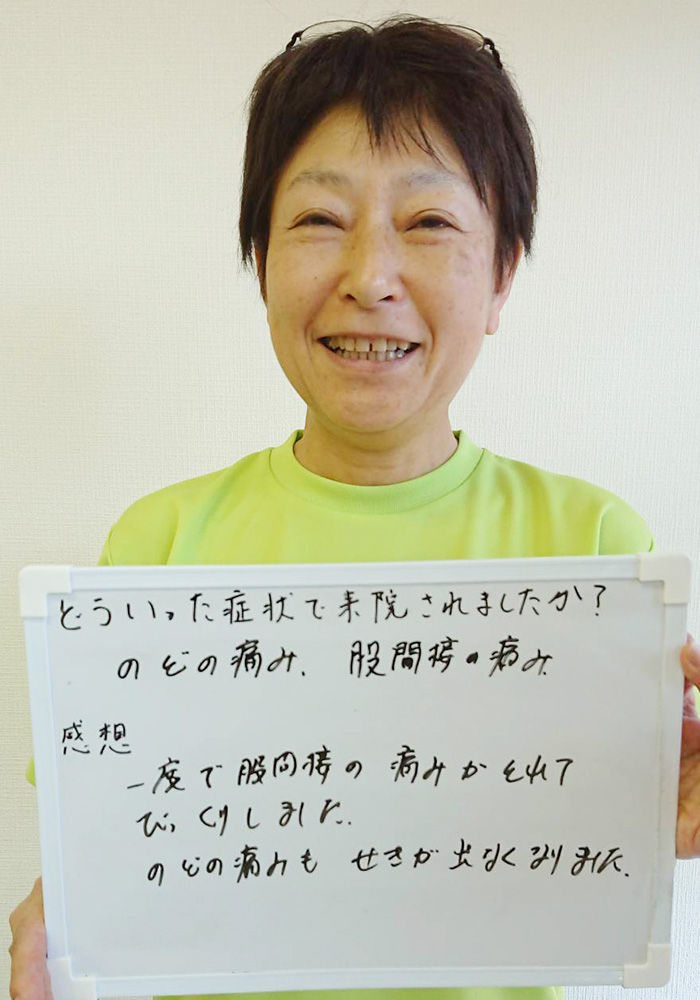 どういった症状で来院されましたか？
のどの痛み、股間接の痛み
感想
一度で股間接の痛みがとれて
びっくりしました。
のどの痛みも せきが出なくなりました。